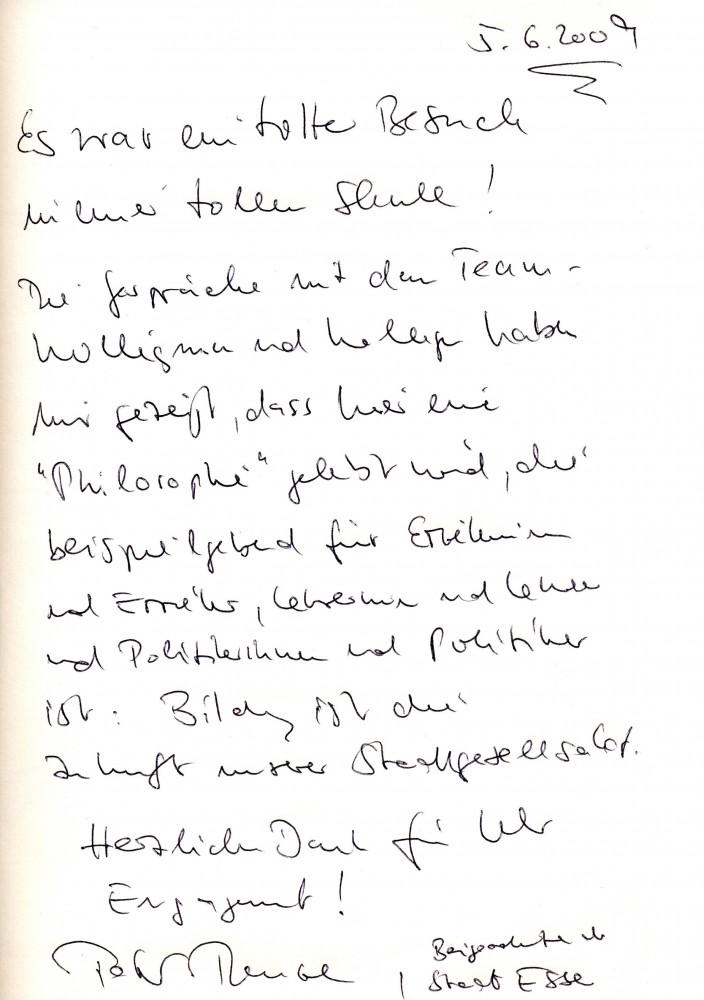 5.6.2009
Es war ein toller Besuch
in einer tollen Schule!
Die Gespräche mit den Team-
kolleginnen und Kollegen haben
mir gezeigt, dass hier eine
"Philosophie" gelebt wird, die
beispielgebend für Erzieherinnen
und Erzieher, Lehrerinnen und Lehrer
und Politikerinnen und Politiker
ist: Bildung ist die
Zukunft unserer Stadtgesellschaft.
Herzlichen Dank für Ihr
Engagement!
Peter Renzel
Beigeordneter der
Stadt Essen